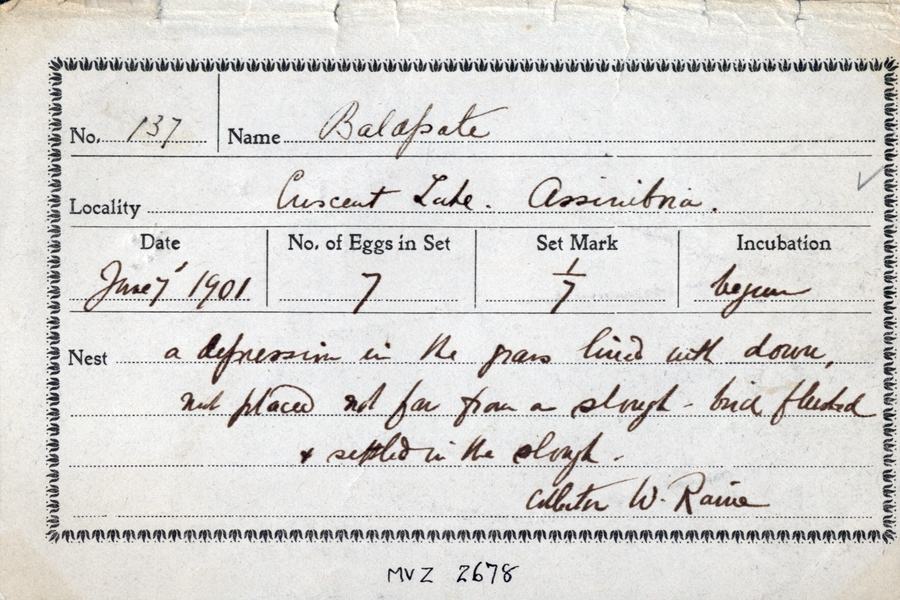 No. 137 Name Baldpate
Locality Crescent Lake. Assiniboia.
Date No. of Eggs in Set Set Mark Incubation
June 7' 1901 7 1/7 begun
Nest a depression in the grass lined with down,
nest placed not far from a slough - bird flushed
& settled in the slough.
Collector W. Raine
MVZ 2678